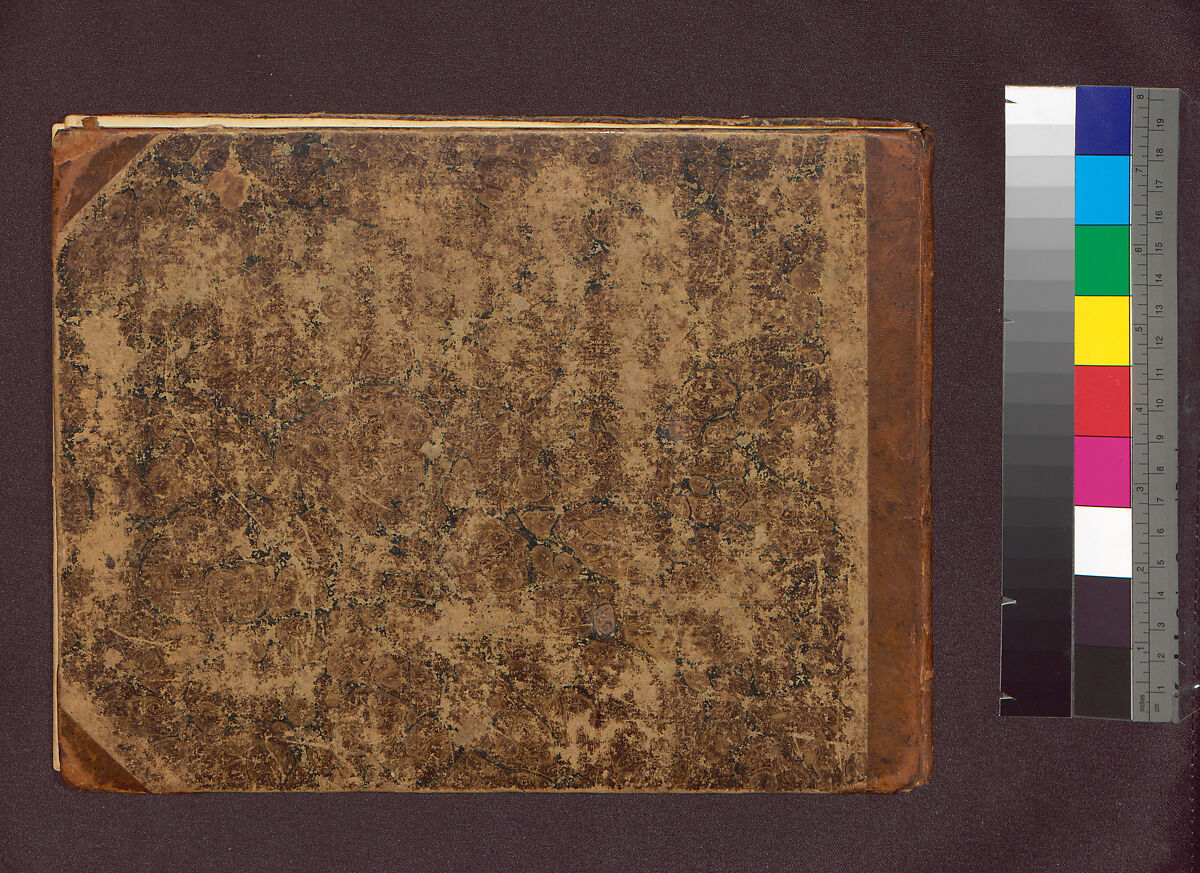 8 7 6 5 4 3 2 1 inches
19 18 17 16 15 14 13 12 11 10 9 8 7 6 5 4 3 2 1 cm